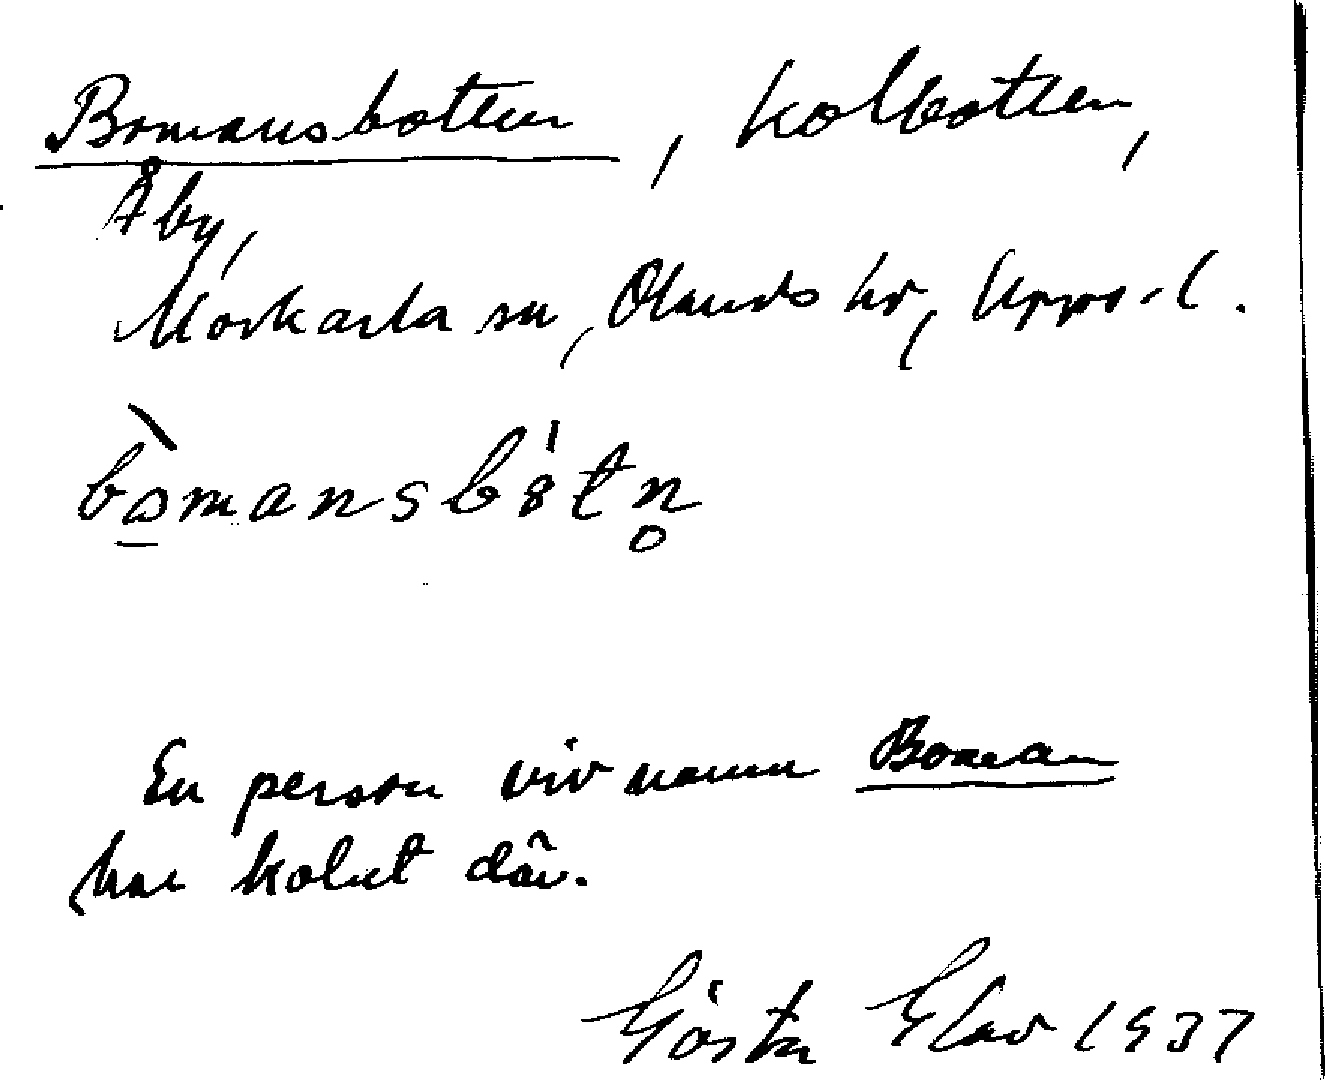 Bomansbotten, kolbotten,
Åby,
Morkarla sn, Olands hd, Upps. l.
En person vid namn Boman
har kolat där.
Gösta Elav 1937